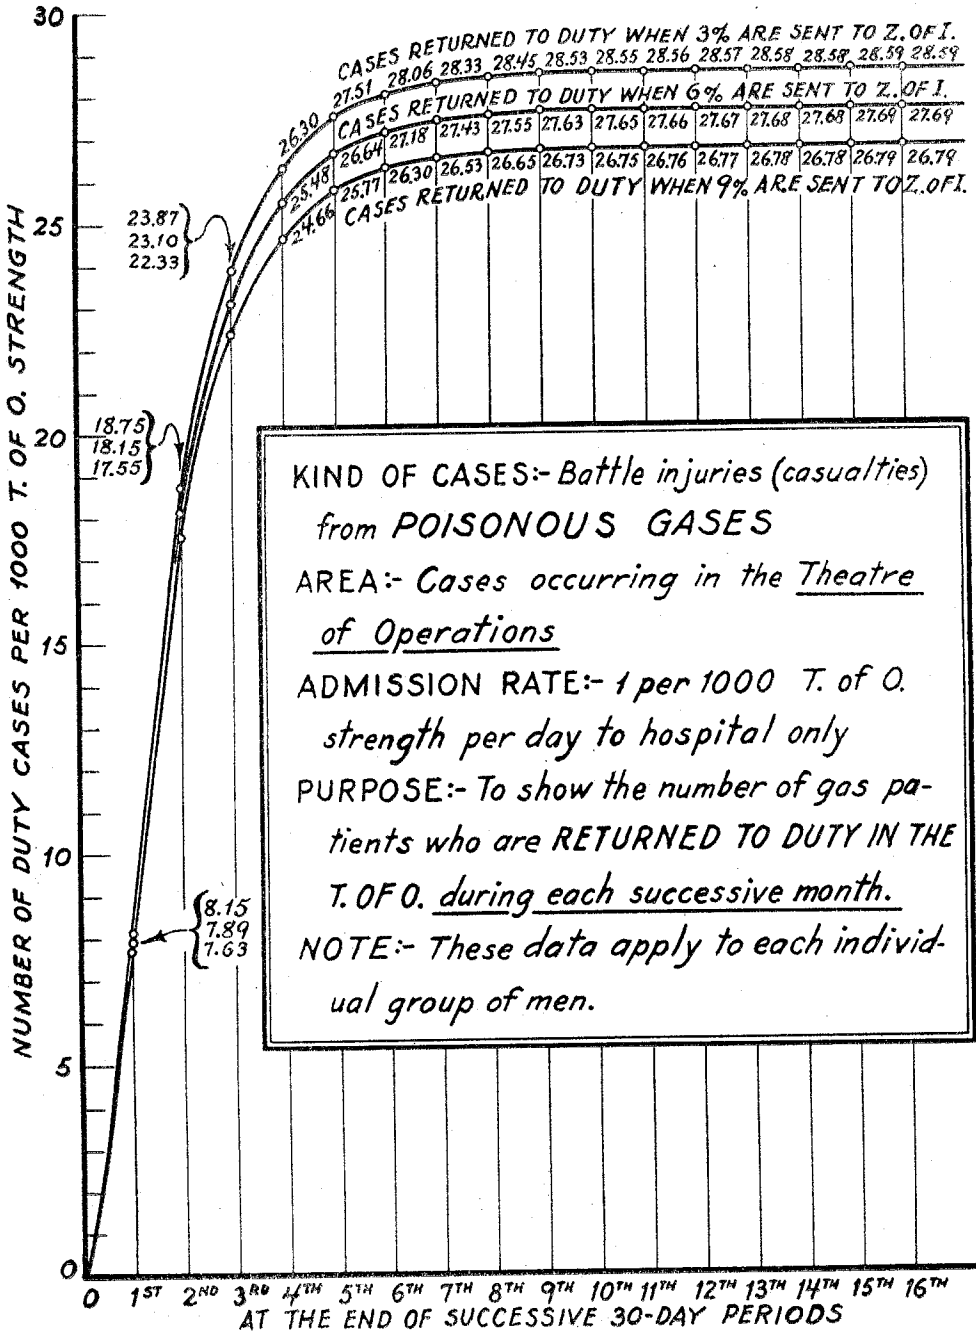 30
25
20
15
10
5
0
NUMBER OF DUTY CASES PER 1000 T. OF O. STRENGTH
CASES RETURNED TO DUTY WHEN 3% ARE SENT TO Z. OF I.
26.30 27.51 28.06 28.33 28.45 28.53 28.55 28.56 28.57 28.58 28.58 28.59 28.59
CASES RETURNED TO DUTY WHEN 6% ARE SENT TO Z. OF I.
25.48 26.64 27.18 27.43 27.55 27.63 27.65 27.66 27.67 27.68 27.68 27.69 27.69
24.66 25.77 26.30 26.53 26.65 26.73 26.75 26.76 26.77 26.78 26.78 26.79 26.79
CASES RETURNED TO DUTY WHEN 9% ARE SENT TO Z. OF I.
23.87
23.10
22.33
18.75
18.15
17.55
8.15
7.89
7.63
KIND OF CASES:- Battle injuries (casualties)
from POISONOUS GASES
AREA:- Cases occurring in the Theatre
of Operations
ADMISSION RATE:- 1 per 1000 T. of O.
strength per day to hospital only
PURPOSE:- To show the number of gas pa-
tients who are RETURNED TO DUTY IN THE
T. OF O. during each successive month.
NOTE:- These data apply to each individ-
ual group of men.
0 1ST 2ND 3RD 4TH 5TH 6TH 7TH 8TH 9TH 10TH 11TH 12TH 13TH 14TH 15TH 16TH
AT THE END OF SUCCESSIVE 30-DAY PERIODS